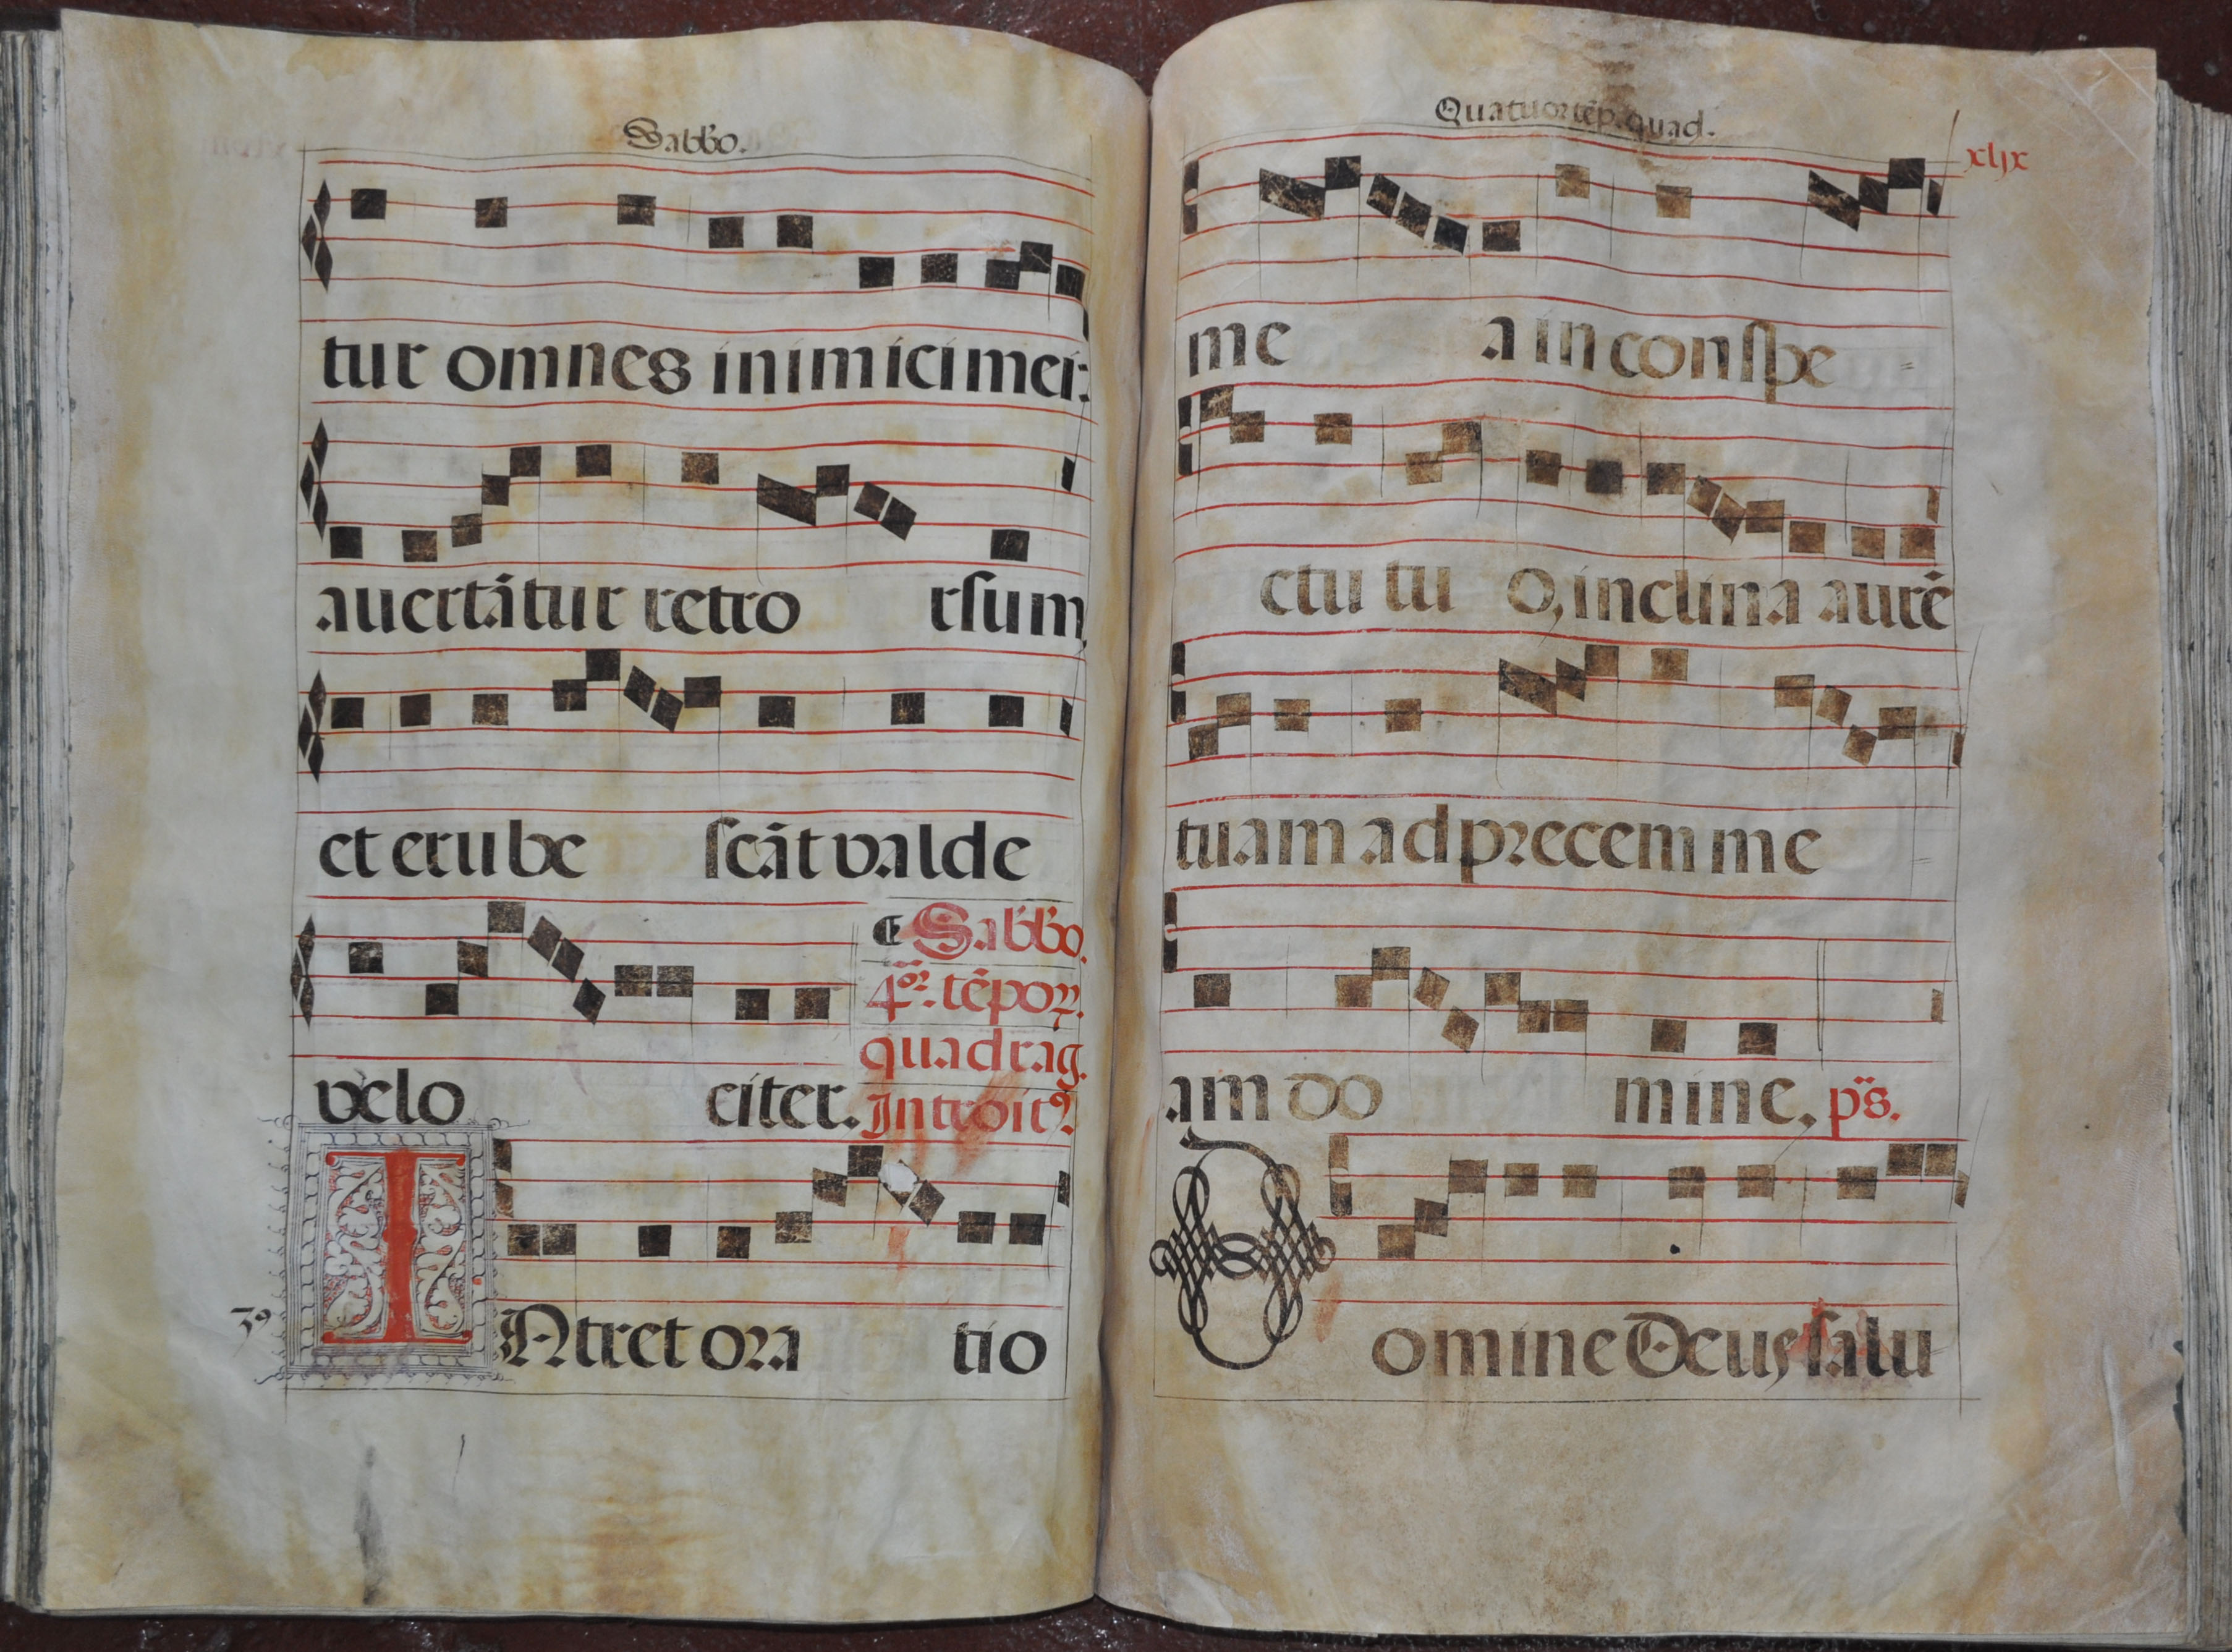 Sabbo.
tur omnes inimici mei:
auertātur retro rsum,
et erube scāt valde
velo citer.
¶ Sabbo.
4or. tēpoꝝ.
quadrag.
Introitꝰ.
39
INtret ora tio
Quatuor tēp. quad.
xlix
me a in conspe =
ctu tu o, inclina aurē
tuam ad precem me =
am do mine, ps.
Domine Deus salu